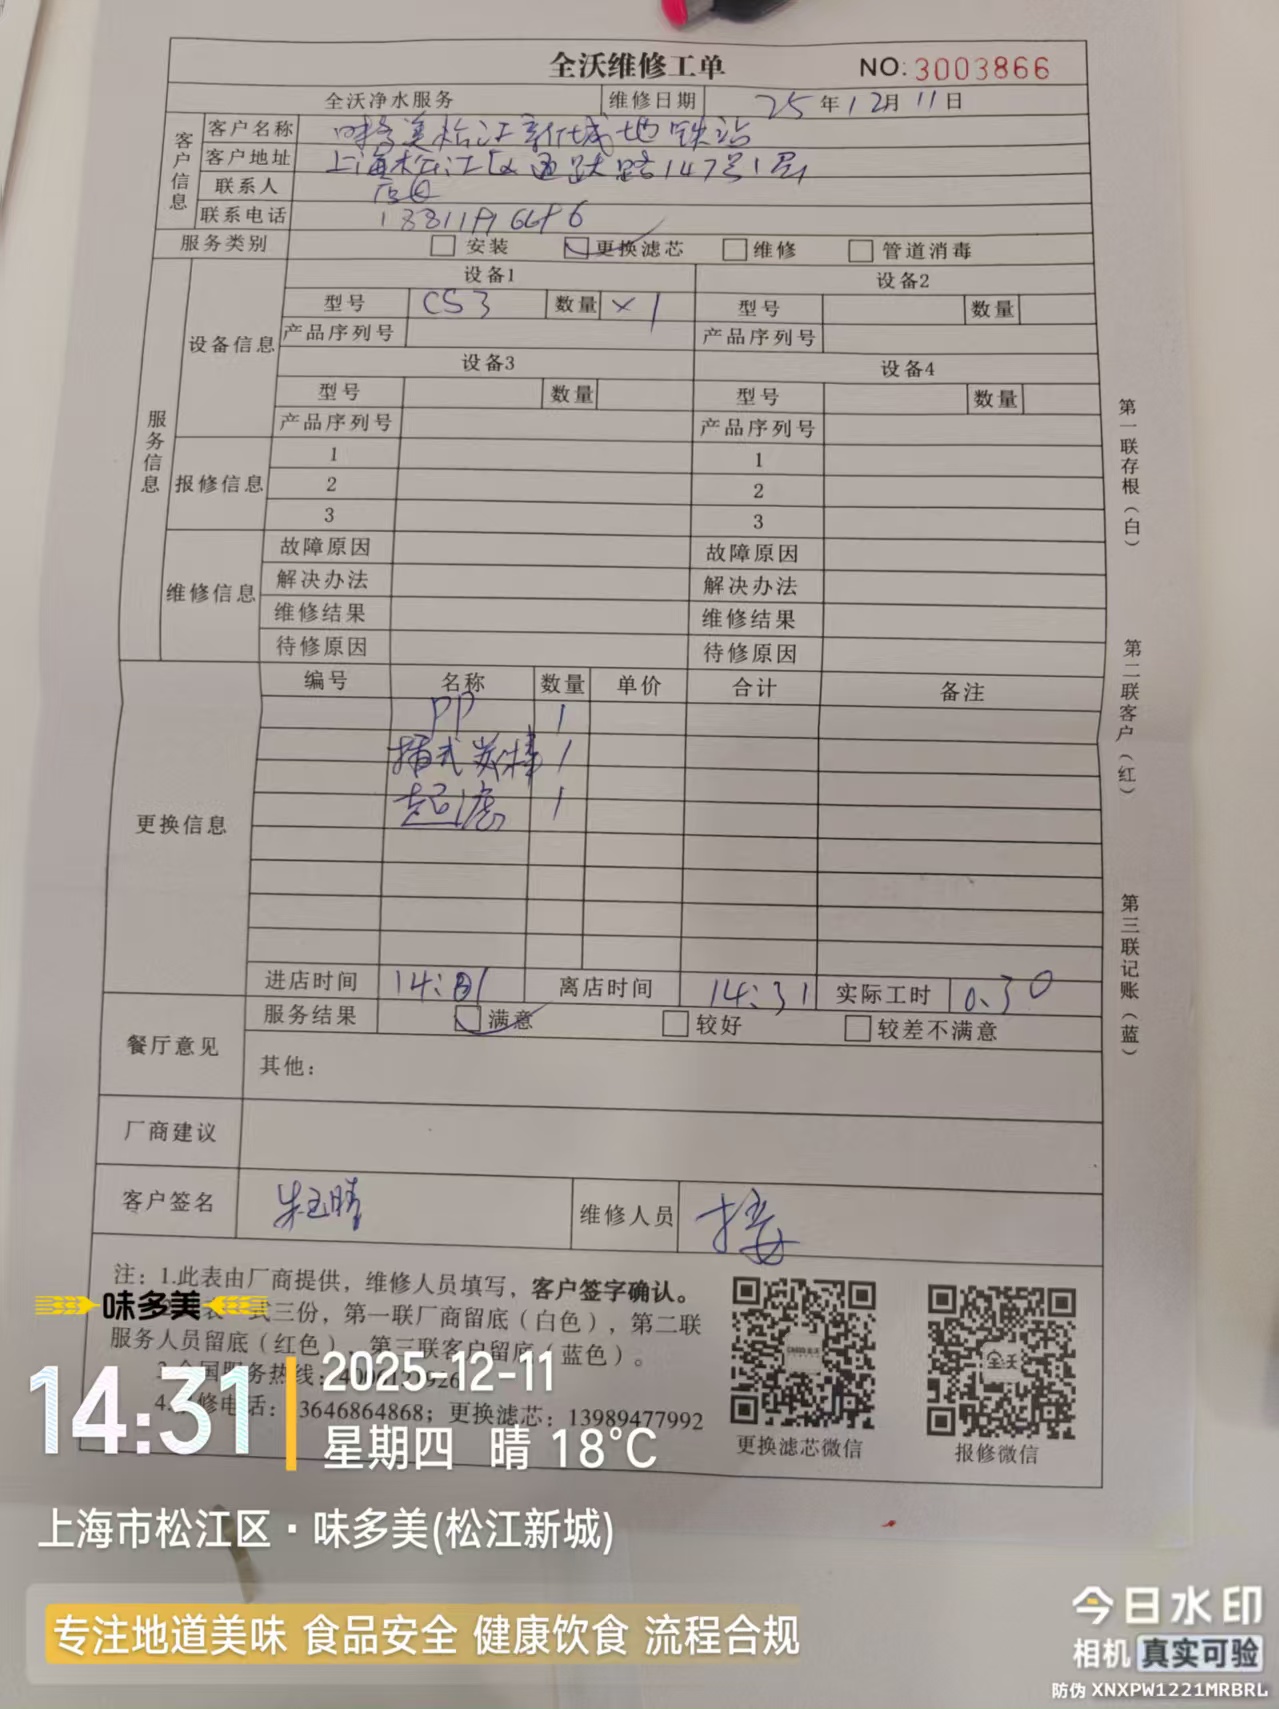 全沃维修工单 NO:3003866
全沃净水服务 维修日期 25年12月11日
客户信息
客户名称 味多美松江新城地铁站
客户地址 上海松江区通跃路147号1层
联系人 店长
联系电话
服务类别 安装 更换滤芯 维修 管道消毒
服务信息
设备信息
设备1 设备2
型号 CS3 数量 ×1 型号 数量
产品序列号 产品序列号
设备3 设备4
型号 数量 型号 数量
产品序列号 产品序列号
报修信息
1 1
2 2
3 3
维修信息
故障原因 故障原因
解决办法 解决办法
维修结果 维修结果
待修原因 待修原因
更换信息
编号 名称 数量 单价 合计 备注
PP 1
插式炭棒 1
超滤 1
进店时间 14:01 离店时间 14:31 实际工时 0.30
餐厅意见
服务结果 满意 较好 较差不满意
其他：
厂商建议
客户签名 朱玉晴 维修人员
注：1.此表由厂商提供，维修人员填写，客户签字确认。
表一式三份，第一联厂商留底（白色），第二联
服务人员留底（红色），第三联客户留底（蓝色）。
全国服务热线：
4. 修电话： 3646864868；更换滤芯：13989477992
更换滤芯微信 报修微信
第一联存根（白）
第二联客户（红）
第三联记账（蓝）
味多美
14:31
2025-12-11
星期四 晴 18°C
上海市松江区·味多美(松江新城)
专注地道美味 食品安全 健康饮食 流程合规
今日水印
相机 真实可验
防伪 XNXPW1221MRBRL